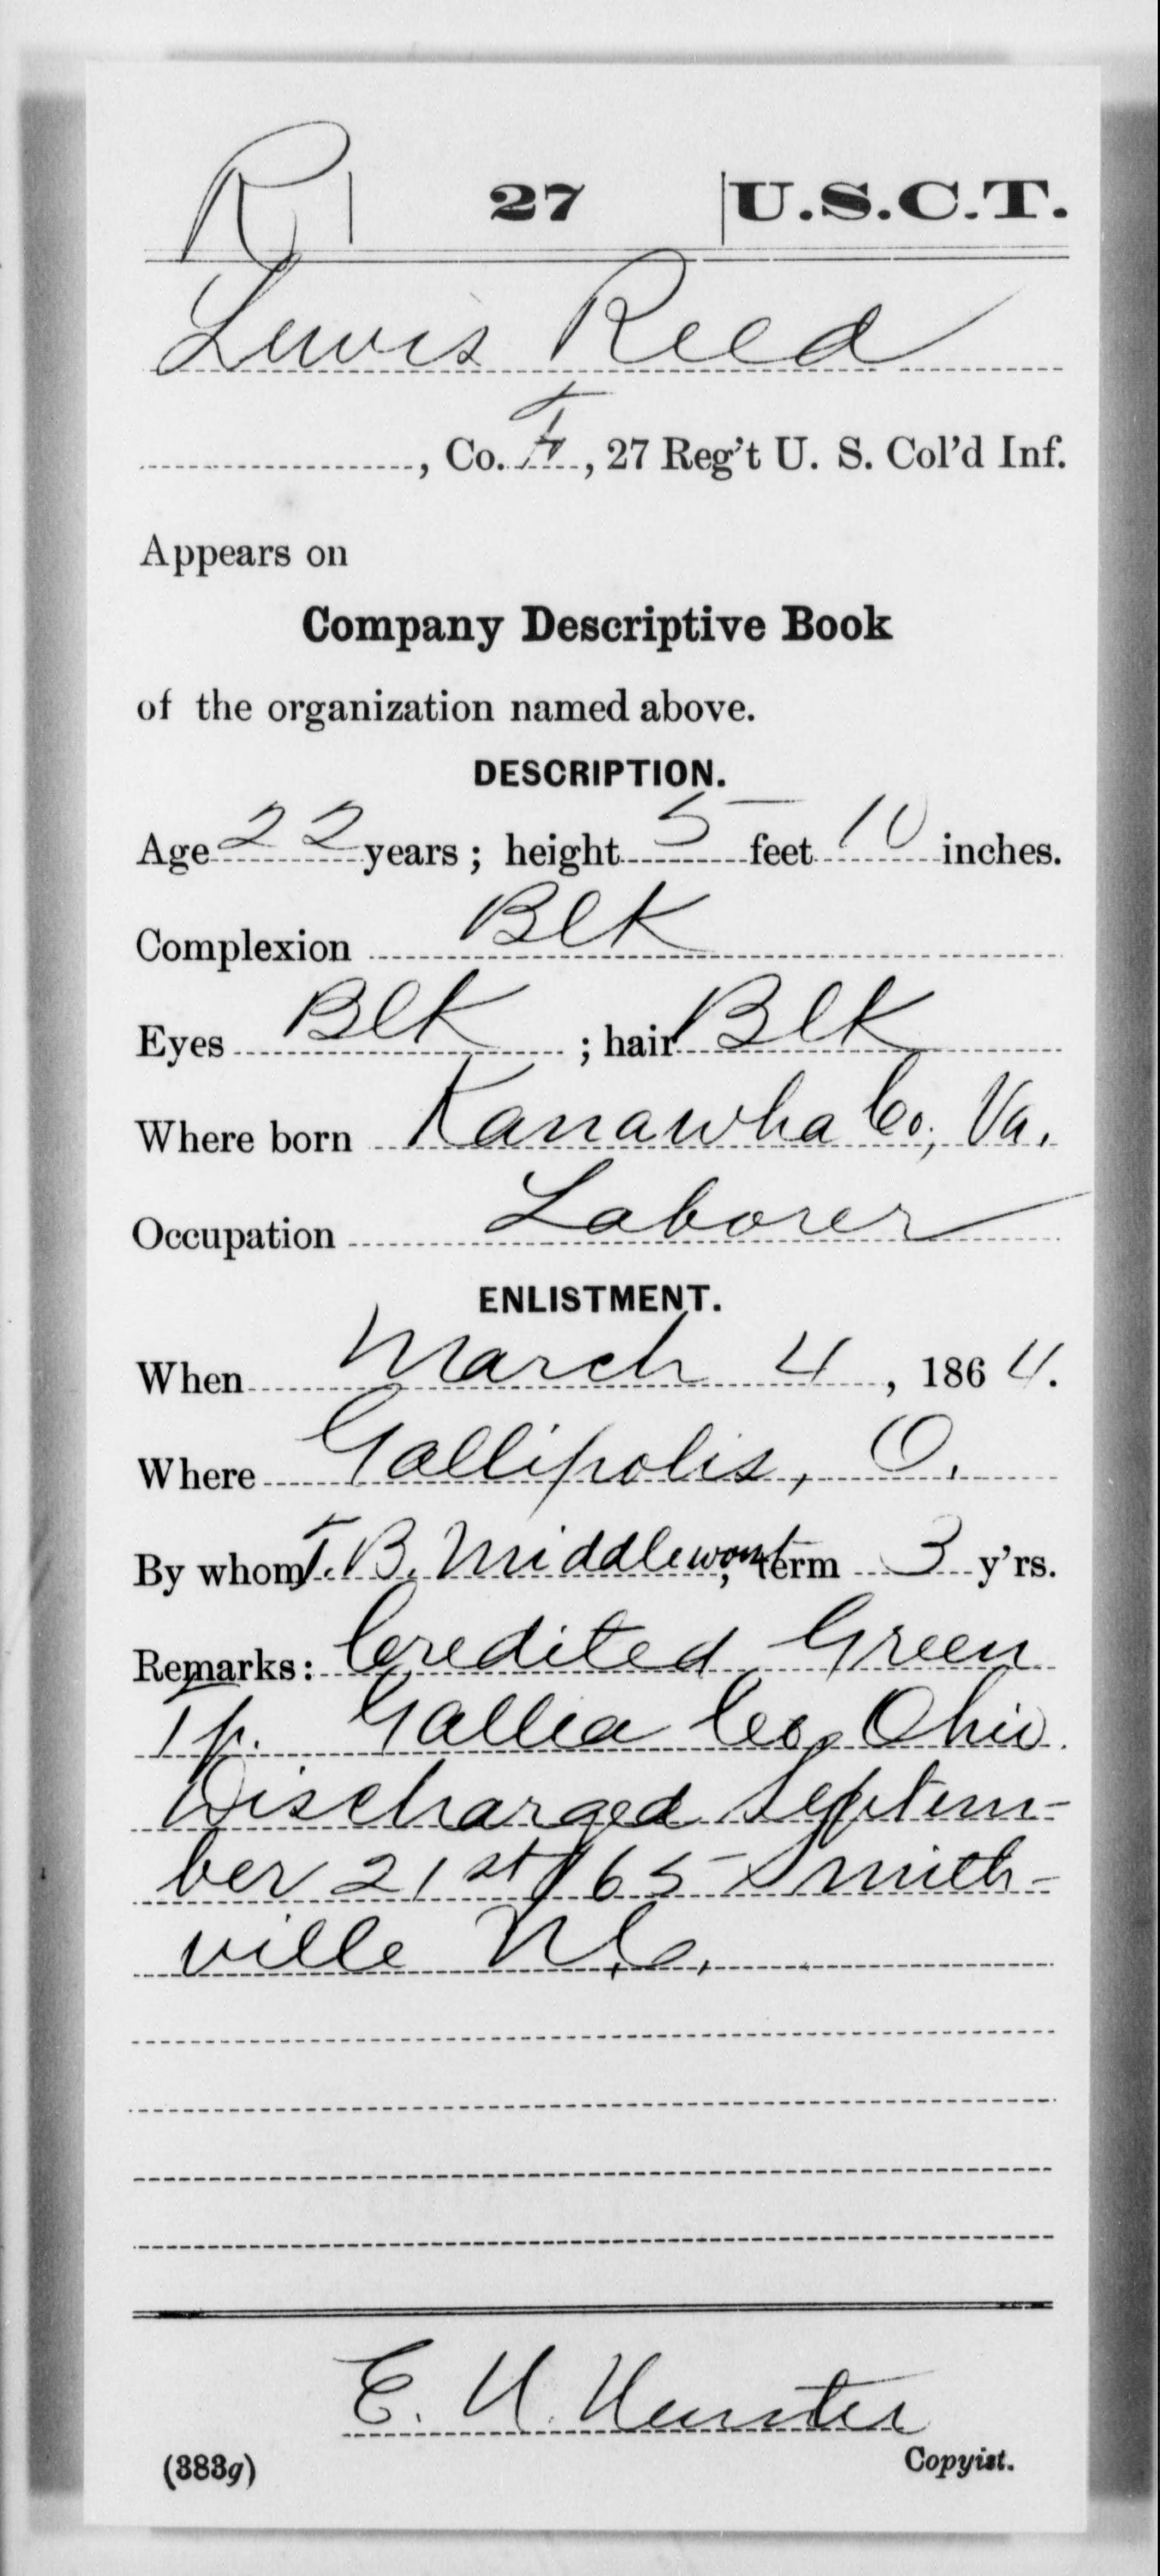 R 27 U.S.C.T.
Lewis Reed
, Co. F, 27 Reg't U. S. Col'd Inf.
Appears on
Company Descriptive Book
of the organization named above.
DESCRIPTION.
Age 22 years; height 5 feet 10 inches.
Complexion Blk
Eyes Blk ; hair Blk
Where born Kanawha Co, Va.
Occupation Laborer
ENLISTMENT.
When March 4, 1864.
Where Gallipolis, O.
By whom T. B. Middleswort, term 3 y'rs.
Remarks: Credited Green
Tp. Gallia Co, Ohio.
Discharged Septem-
ber 21st/65 Smith-
ville N.C.
E. H.
(383g) Copyist.